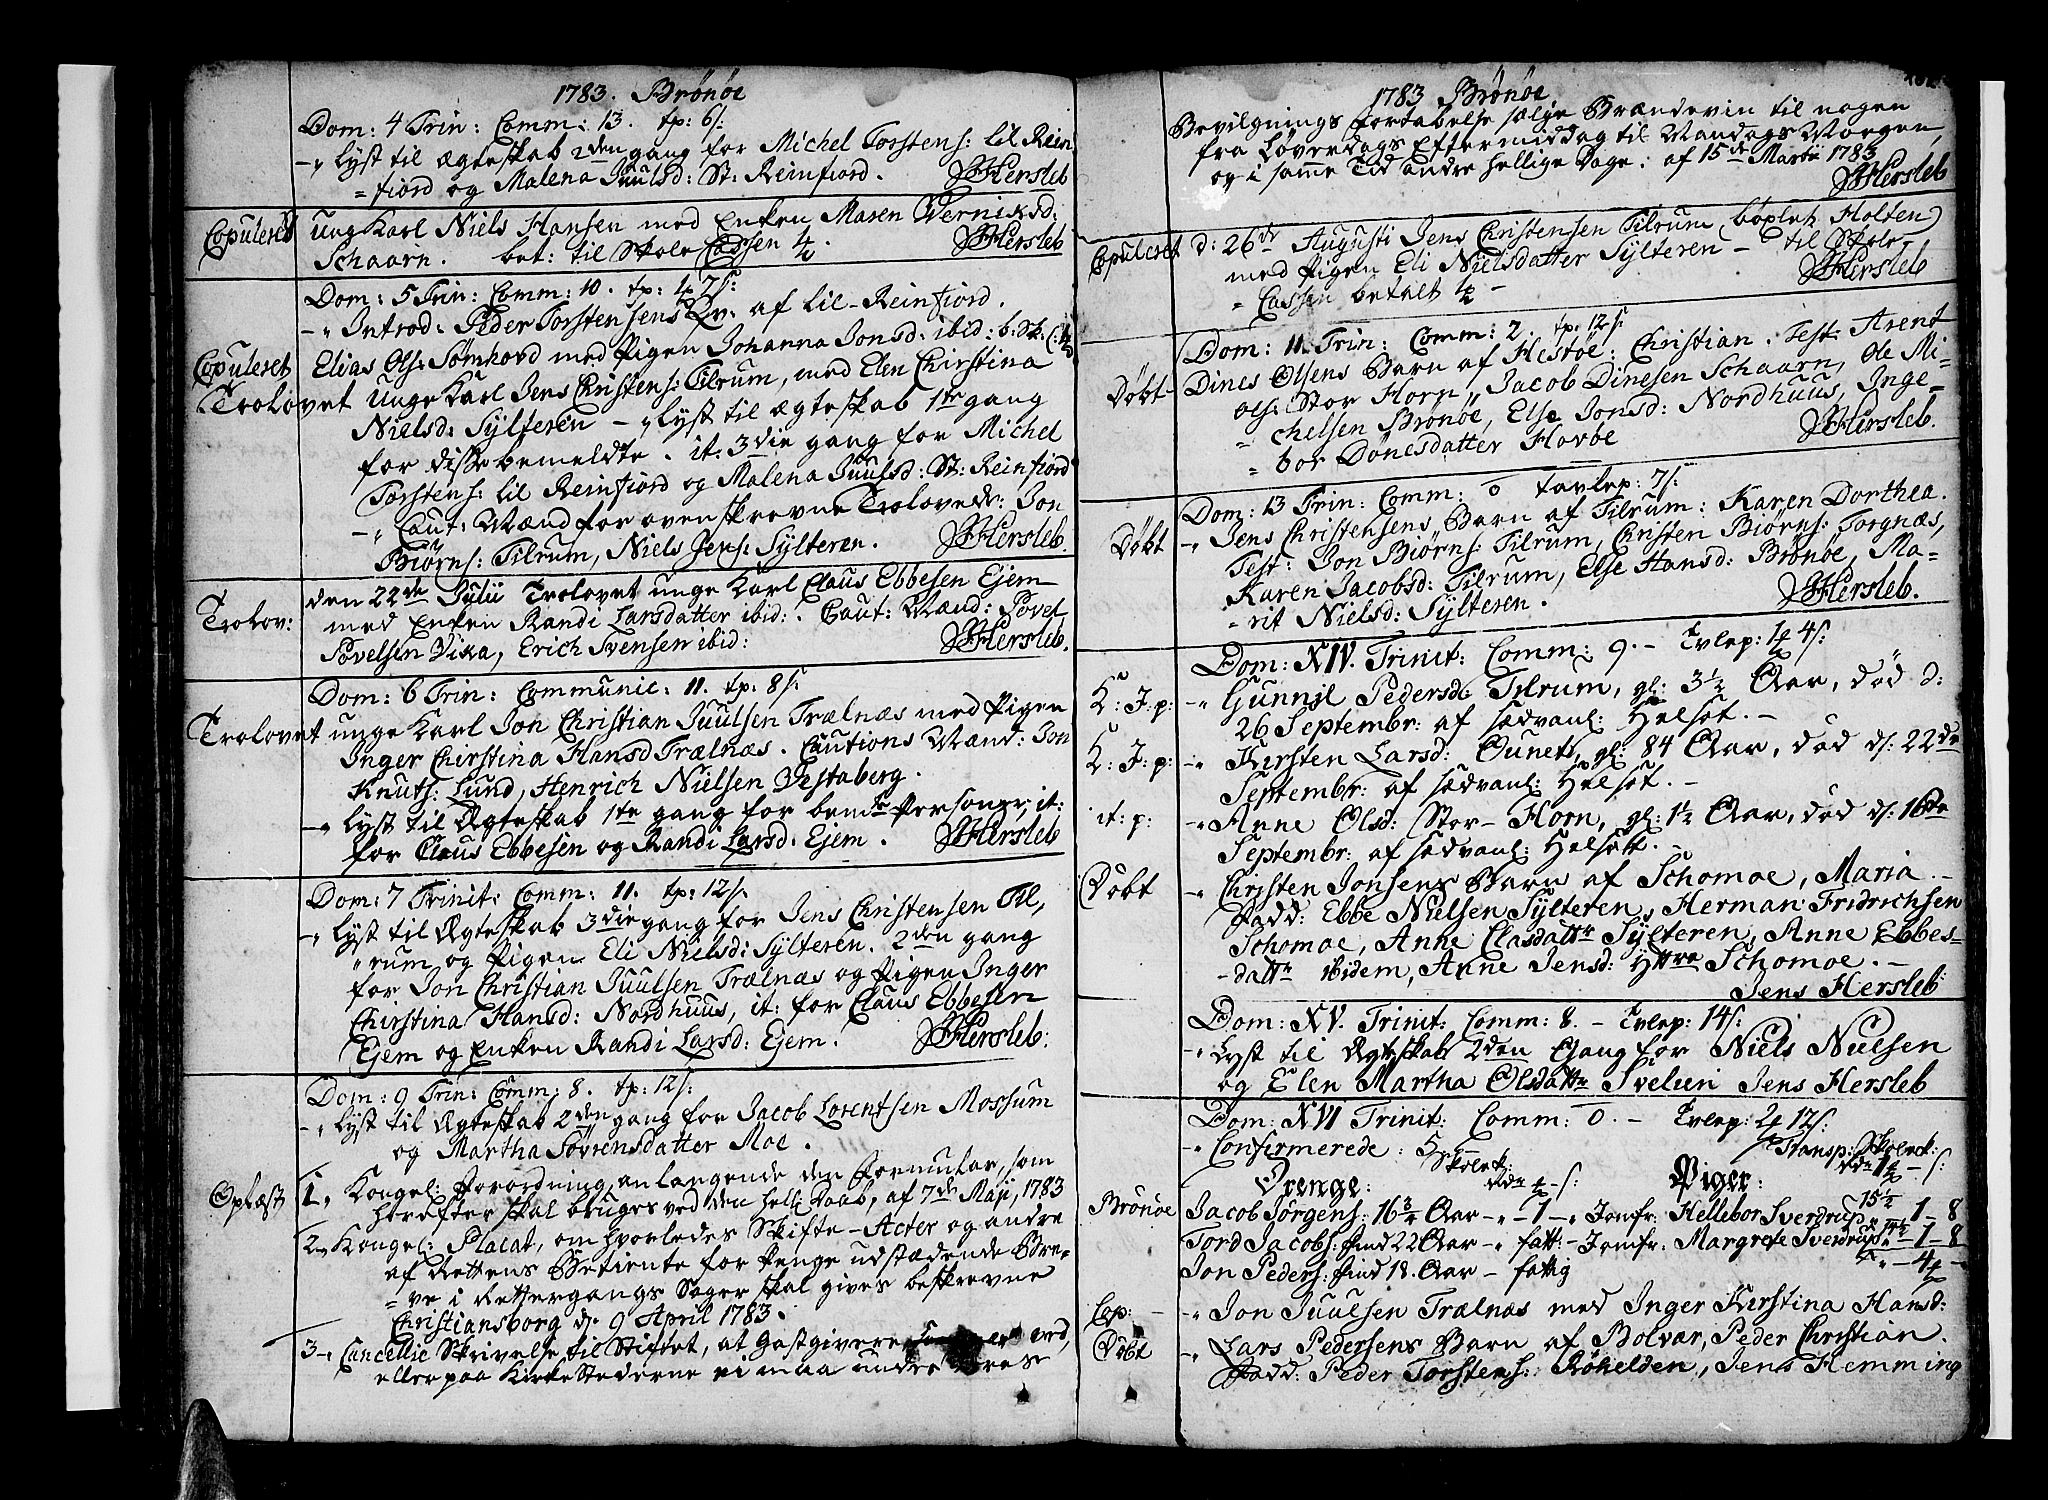 1783. Brønøe
Dom: 4 Trin: Comm: 13. tp: 6 s:
-„ Lyst til ægteskab 2den gang for Michel Torstens: lil Rein
= fiord og Malena Juulsd: St: Reinfiord. JHersleb
Copuleret ung Karl Niels Hansen med Enken Maren Verniksd:
Schaarn. bet: til Skole Cassen ½. JHersleb
Dom: 5 Trin: Comm: 10. tp: 7 s:
-„ Introd: Peder Torstensens Qv: af lil-Reinfiord.
Copuleret Elias Ols: Sømhovd med Pigen Johanna Jonsd: ibid:
Trolovet Unge Karl Jens Christens: Tilrum, med Elen Chirstina
Nielsd: Sylteren -„ Lyst til ægteskab 1ste gang
for disse bemeldte. it: 3die gang for Michel
Torstens: lil Reinfiord og Malena Juulsd: St: Reinfiord
-„ Caut: Mænd for ovenskrevne Trolovede: Jon
Biørns: Tilrum, Niels Jens: Sylteren. JHersleb.
Trolov: den 22de Julii Trolovet unge Karl Claus Ebbesen Ejem
med Enken Randi Larsdatter ibid:. Caut: Mænd: Povel
Povelsen Vixa, Erich Svensen ibid: JHersleb.
Dom: 6 Trin: Communic: 11. tp: 8 s:
Trolovet unge Karl Jon Christian Juulsen Trælnæs med Pigen
Inger Chirstina Hansd Trælnæs. Cautions Mænd: Jon
Knuts: Lund, Henrich Nielsen Vestaberg.
-„ Lyst til Ægteskab 1ste gang for bemte Personer, it:
for Claus Ebbesen og Randi Larsd: Ejem. JHersleb
Dom: 7 Trinit: Comm: 11. tp: 12 s:
-„ Lyst til Ægteskab 3die gang for Jens Christensen Til,
„rum og Pigen Eli Nielsd: Sylteren. 2den gang
for Jon Christian Juulsen Trælnæs og Pigen Inger
Chirstina Hansd: Nordhuus, it: for Claus Ebbesen
Ejem og Enken Randi Larsd: Ejem. JHersleb:
Dom: 9 Trin: Comm: 8. tp: 12 s:
-„ Lyst til ægteskab 2den gang for Jacob Lorentsen Mossum
og Martha Sörrensdatter Moe.
Oplæst 1„ Kongel: Forordning, anlangende den Formular, som
herefter skal bruges ved den hell: Daab, af 7de Maji, 1783
2-„ Kongel: Placat, om hvorledes Skifte-Acter og andre
af Rettens Betiente for Penge udstædende Bre=
= ve i Rettergangs Sager skal gives beskrevne
Christiansborg d. 9 April 1783.
3-„ Cancellie Skrivelse til Stiftet, at Gastgivere ved,
eller paa Kirke Stederne ei maa under deres
1783 Brønøe
Bevilgnings Fortabelse sælge Brændevin til nogen
fra Løverdags Eftermiddag til Mandags Morgen,
og i samme Tid andre hellige Dage: af 15de Martii 1783
JHersleb
Copuleret d: 26de Augusti Jens Christensen Tilrum, boplet Holten
med Pigen Eli Nielsdatter Sylteren - til Skole-
„ Cassen betalt ½ -
JHersleb
Dom: 11 Trin: Comm: 2. tp: 12 s:
Døbt - Dines Olsens Barn af Hestøe: Christian. Test: Arent
Ols: Stor Horn, Jacob Dinesen Schaarn, Ole Mi-
„ chelsen Brønøe, Else Jonsd: Nordhuus, Inge-
„ bor Dönesdatter Havøe JHersleb.
Dom: 13 Trin: Comm: 0 tavlep: 7 s:
Døbt -„ Jens Christensens Barn af Tilrum: Karen Dorthea.
Test: Jon Biørns: Tilrum, Christen Biørns: Torgnæs,
Karen Jacobsd: Tilrum, Else Hansd: Brønøe, Ma-
„ rit Nielsd: Sylteren. JHersleb.
Dom: XIV. Trinit: Comm: 9. - Tvlep: 4 s:
K: J: p: -„ Gunnil Pedersd: Tilrum, gl: 3½ Aar, død d:
26 Septembr: af sædvanl: Helsøt. -
K: J: p: -„ Kirsten Larsd: Øunets, gl: 84 Aar, død d: 22de
Septembr: af sædvanl: Helsøt. -
it: p: -„ Anne Olsd: Stor-Horn, gl: 1½ Aar, død d: 16de
Septembr: af sædvanl: Helsøtt. -
Døbt -„ Christen Jonsens Barn af Schomoe, Maria. -
Fadd: Ebbe Nielsen Sylteren, Herman Fridrichsen
Schomoe, Anne Clasdattr Sylteren, Anne Ebbes-
- dattr ibidem, Anne Jensd: Yttre Schomoe. -
Jens Hersleb
Dom: XV. Trinit: Comm: 8. - Tvlep: 14 s:
-„ Lyst til Ægteskab 2den Gang for Niels Nielsen
og Elen Martha Olsdattr Svelien Jens Hersleb
Dom: XVI Trinit: Comm: 0. - Tvlep: 12 s:
-„ Confirmerede: 5 Transp: Skolerk:
Skolerk:
Drenge: Piger:
Brønøe Jacob Jørgens: 16¾ Aar -„ -1 -„ Jomfr: Hellebor Sverdrup 15½ 1-8
Tord Jacobs: ind 22 Aar -„ fatt: - Jomfr: Margrete Sverdrup 1-8
Jon Peders: ind 18. Aar - fattig -4-
Cop: -„ Jon Juulsen Trælnæs med Inger Kirstina Hansd:
Døbt -„ Lars Pedersens Barn af Bolvær, Peder Christian.
Fadd: Peder Torstens: Røhelden, Jens Hemming